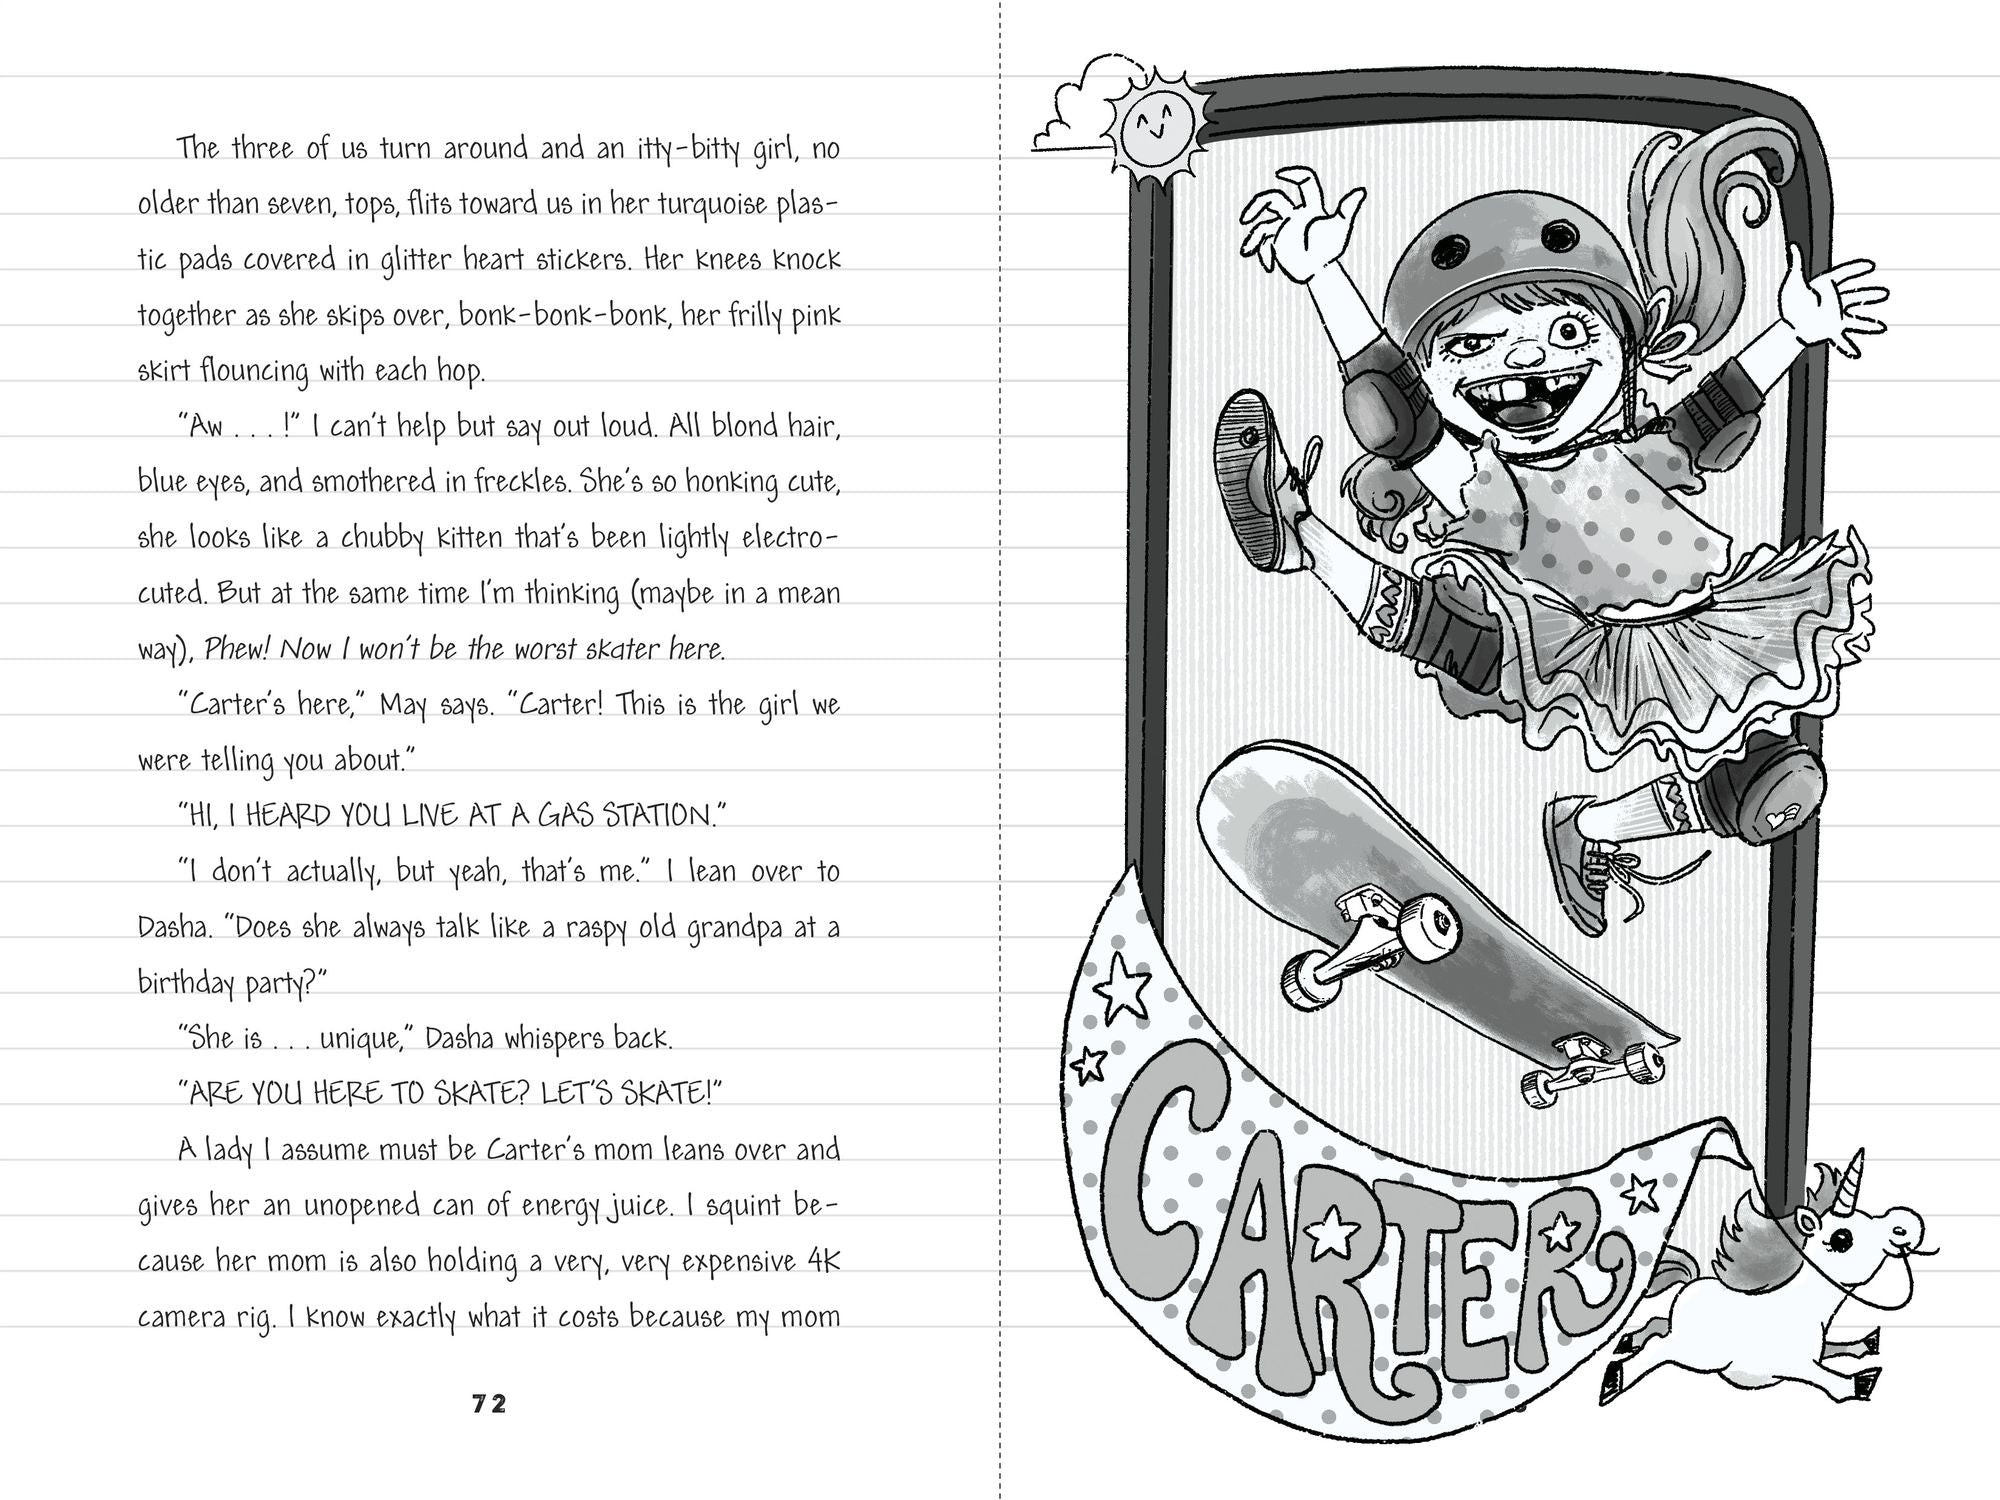 The three of us turn around and an itty-bitty girl, no
older than seven, tops, flits toward us in her turquoise plas-
tic pads covered in glitter heart stickers. Her knees knock
together as she skips over, bonk-bonk-bonk, her frilly pink
skirt flouncing with each hop.
“Aw . . . !” I can’t help but say out loud. All blond hair,
blue eyes, and smothered in freckles. She’s so honking cute,
she looks like a chubby kitten that’s been lightly electro-
cuted. But at the same time I’m thinking (maybe in a mean
way), Phew! Now I won’t be the worst skater here.
“Carter’s here,” May says. “Carter! This is the girl we
were telling you about.”
“HI, I HEARD YOU LIVE AT A GAS STATION.”
“I don’t actually, but yeah, that’s me.” I lean over to
Dasha. “Does she always talk like a raspy old grandpa at a
birthday party?”
“She is . . . unique,” Dasha whispers back.
“ARE YOU HERE TO SKATE? LET’S SKATE!”
A lady I assume must be Carter’s mom leans over and
gives her an unopened can of energy juice. I squint be-
cause her mom is also holding a very, very expensive 4K
camera rig. I know exactly what it costs because my mom
72
CARTER